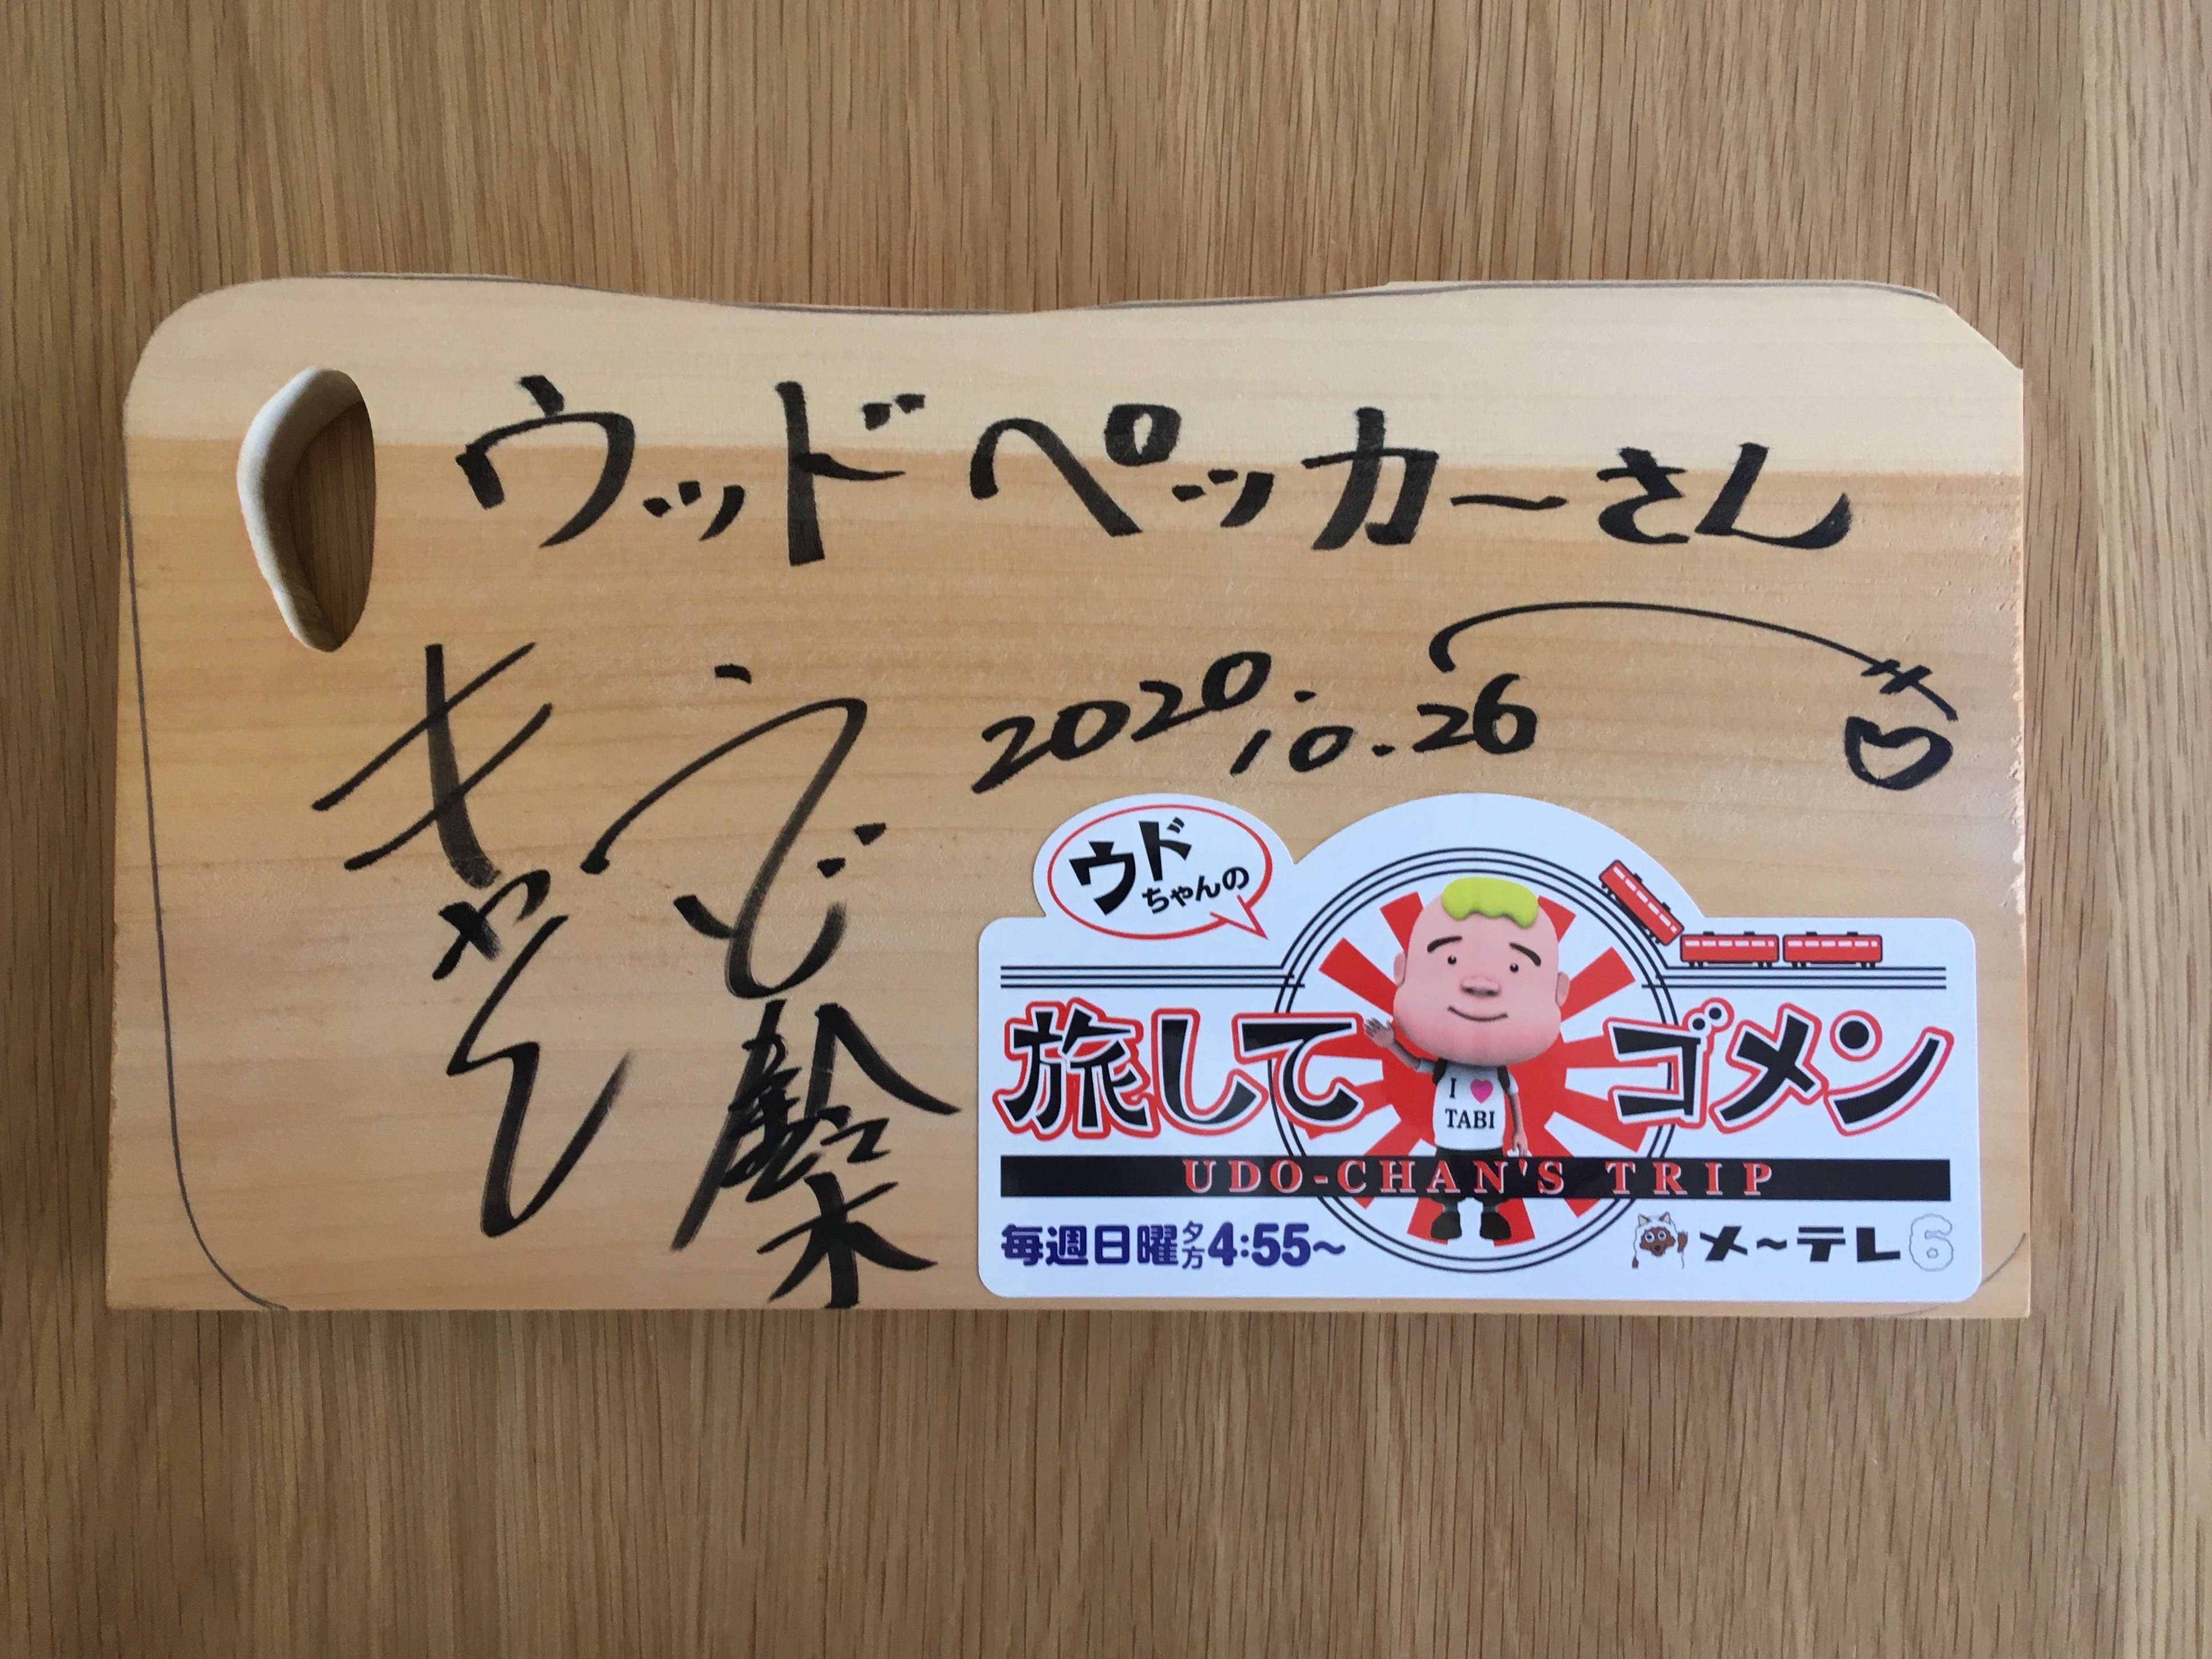 ウッドペッカーさん
2020.10.26
キャイ〜ン
ウド鈴木
ウドちゃんの
旅してゴメン
I ♥
TABI
UDO-CHAN'S TRIP
毎週日曜夕方4:55~
メ~テレ6